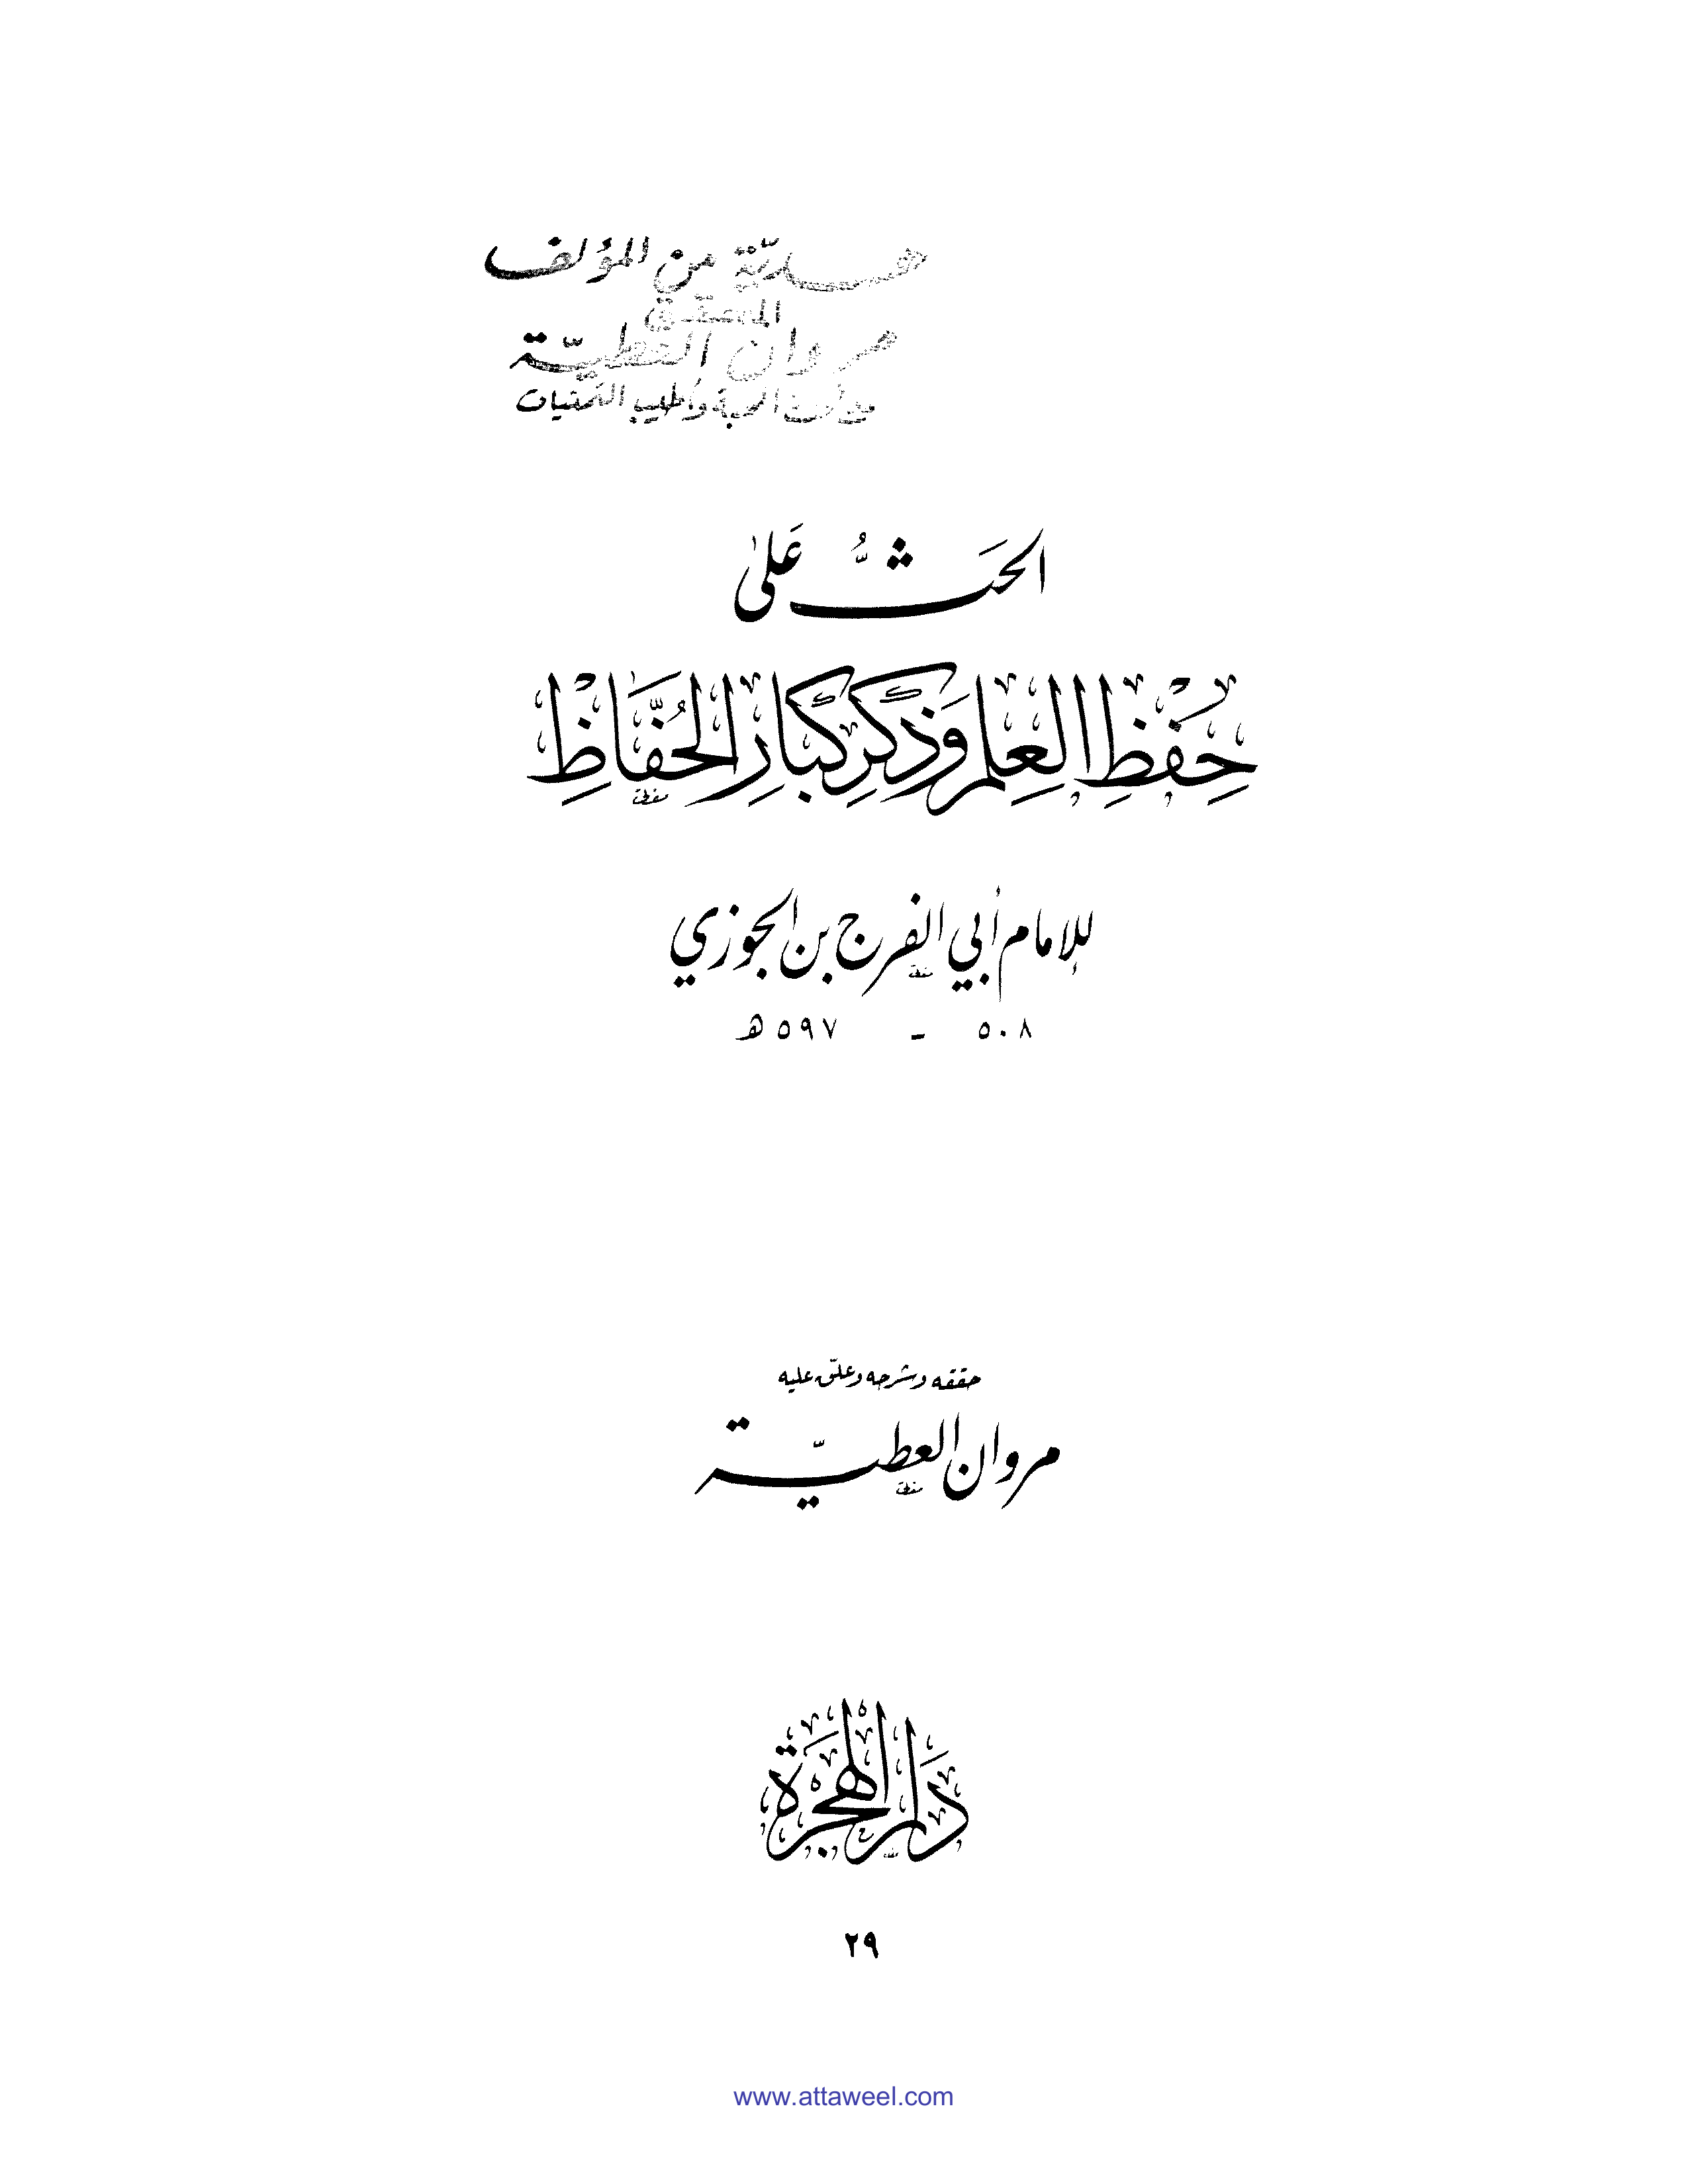 هديّة من المؤلف
المحقق
مروان العطيّة
مع أصدق المحبة وأطيب التمنيات
الحَثُّ عَلىٰ
حِفْظِ العِلمِ وَذِكْرِ كِبَارِ الحُفَّاظِ
للإمام أبي الفرج بن الجوزي
٥٠٨ - ٥٩٧ هـ
حققه وشرحه وعلّق عليه
مروان العطيّة
دَارُ الهِجْرَة
٢٩
www.attaweel.com